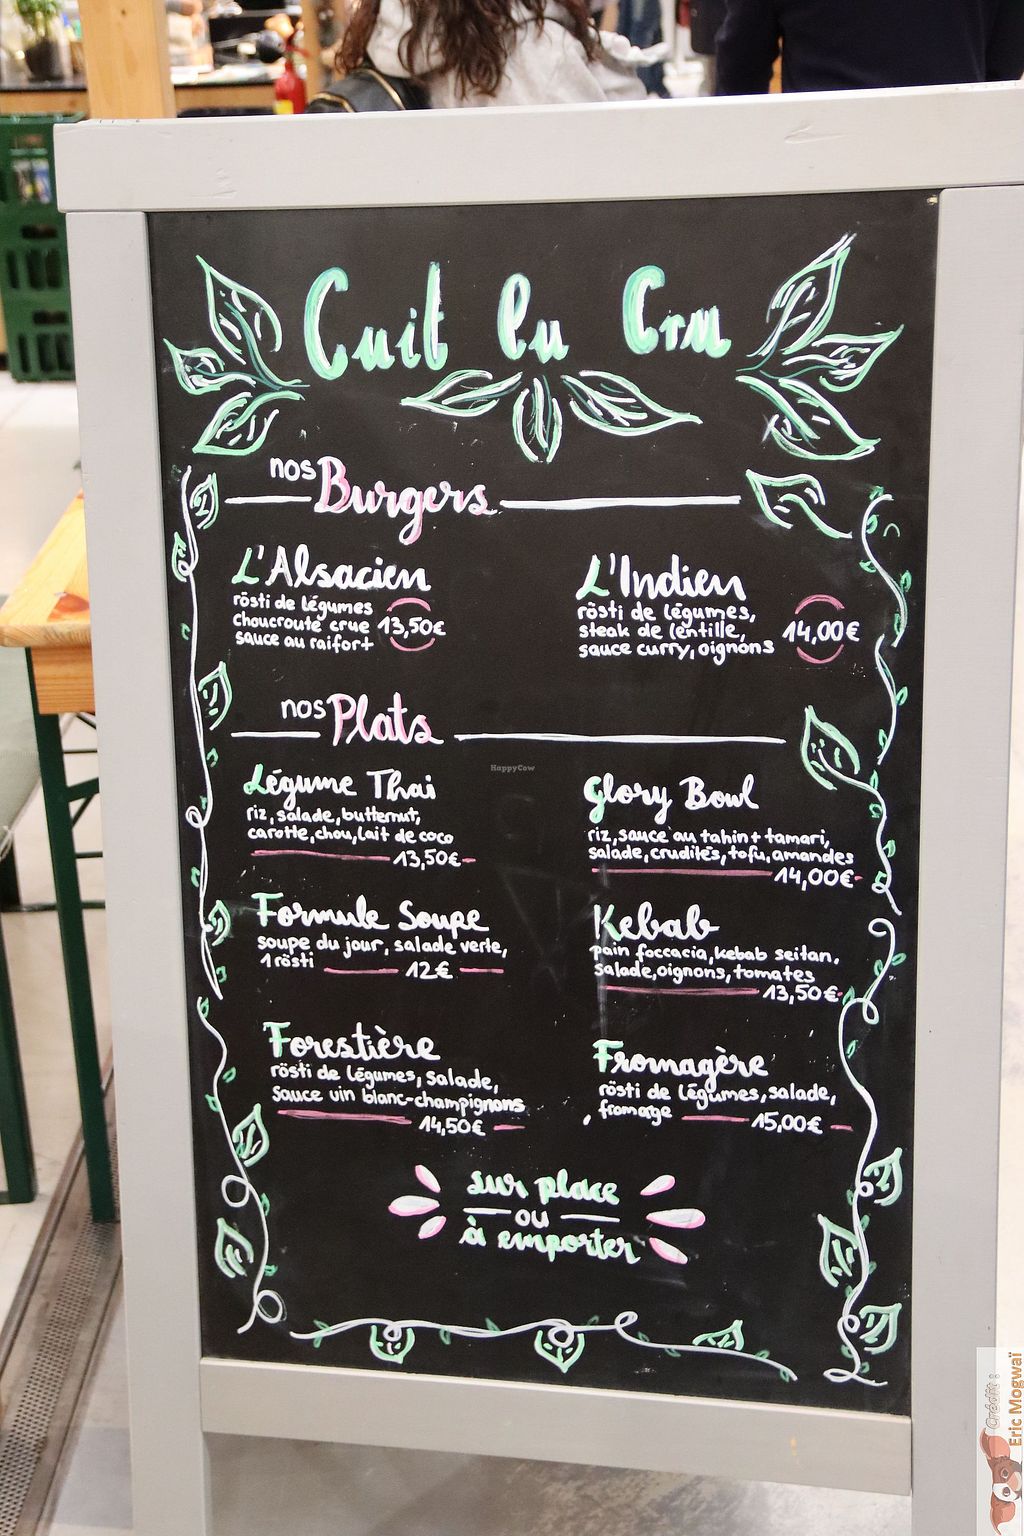 Cuit lu Cru
nos Burgers
L'Alsacien
rösti de légumes
choucroute crue
sauce au raifort
13,50€
L'Indien
rösti de légumes,
steak de lentille,
sauce curry, oignons
14,00€
nos Plats
Légume Thai
riz, salade, butternut,
carotte, chou, lait de coco
13,50€
Glory Bowl
riz, sauce au tahin + tamari,
salade, crudités, tofu, amandes
14,00€
Formule Soupe
soupe du jour, salade verte,
1 rösti
12€
Kebab
pain foccacia, kebab seitan,
salade, oignons, tomates
13,50€
Forestière
rösti de légumes, salade,
sauce vin blanc-champignons
14,50€
Fromagère
rösti de légumes, salade,
, fromage
15,00€
sur place
ou
à emporter
HappyCow
Crédit :
Eric Mogwaï